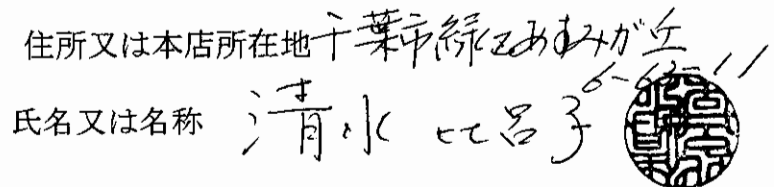 住所又は本店所在地千葉市緑区あすみが丘
6-62-11
氏名又は名称 清水 比呂子